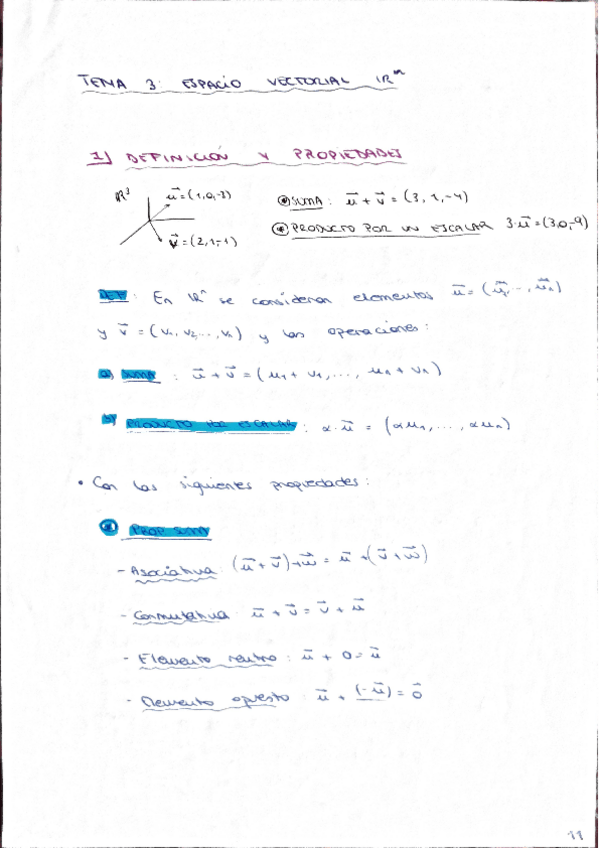 TEMA 3: ESPACIO VECTORIAL ℝⁿ
1) DEFINICIÓN Y PROPIEDADES
ℝ³ u⃗=(1,0,-3) v⃗=(2,1,-1)
⊛ SUMA: u⃗+v⃗=(3,1,-4)
⊛ PRODUCTO POR UN ESCALAR 3·u⃗=(3,0,-9)
DEF: En ℝⁿ se consideran elementos u⃗=(u⃗₁,..,u⃗ₙ)
y v⃗=(v₁,v₂,..,vₙ) y las operaciones:
a) SUMA: u⃗+v⃗=(u₁+v₁,...,uₙ+vₙ)
b) PRODUCTO POR ESCALAR: α·u⃗=(αu₁,...,αuₙ)
• Con las siguientes propiedades:
⊛ PROP SUMA
- Asociativa: (u⃗+v⃗)+w⃗=u⃗+(v⃗+w⃗)
- Conmutativa: u⃗+v⃗=v⃗+u⃗
- Elemento neutro: u⃗+0=u⃗
- Elemento opuesto: u⃗+(-u⃗)=0⃗
11